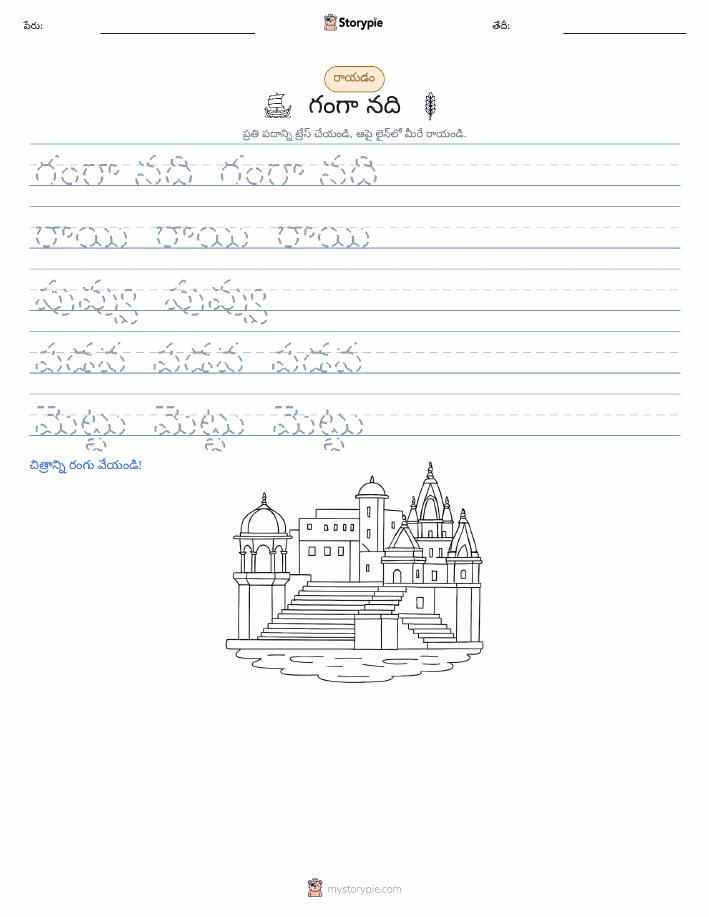 పేరు: Storypie తేదీ:
రాయడం
గంగా నది
ప్రతి పదాన్ని ట్రేస్ చేయండి, ఆపై లైన్‌లో మీరే రాయండి.
గంగా నది గంగా నది
రాయి రాయి రాయి
పుష్పు పుష్పు
పడవ పడవ పడవ
మెట్టు మెట్టు మెట్టు
చిత్రాన్ని రంగు వేయండి!
mystorypie.com